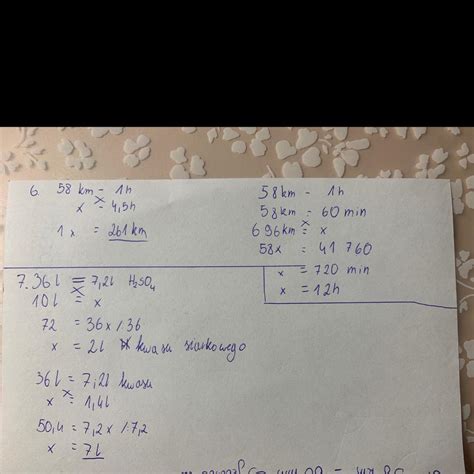 6. 58 km - 1h
x = 4,5h
1x = 261 km
58 km - 1h
58 km = 60 min
696 km = x
58x = 41 760
x = 720 min
x = 12h
7. 36 l = 7,2l H₂SO₄
10 l = x
72 = 36x /:36
x = 2l kwasu siarkowego
36 l = 7,2l kwasu
x = 1,4l
50,4 = 7,2x /:7,2
x = 7l